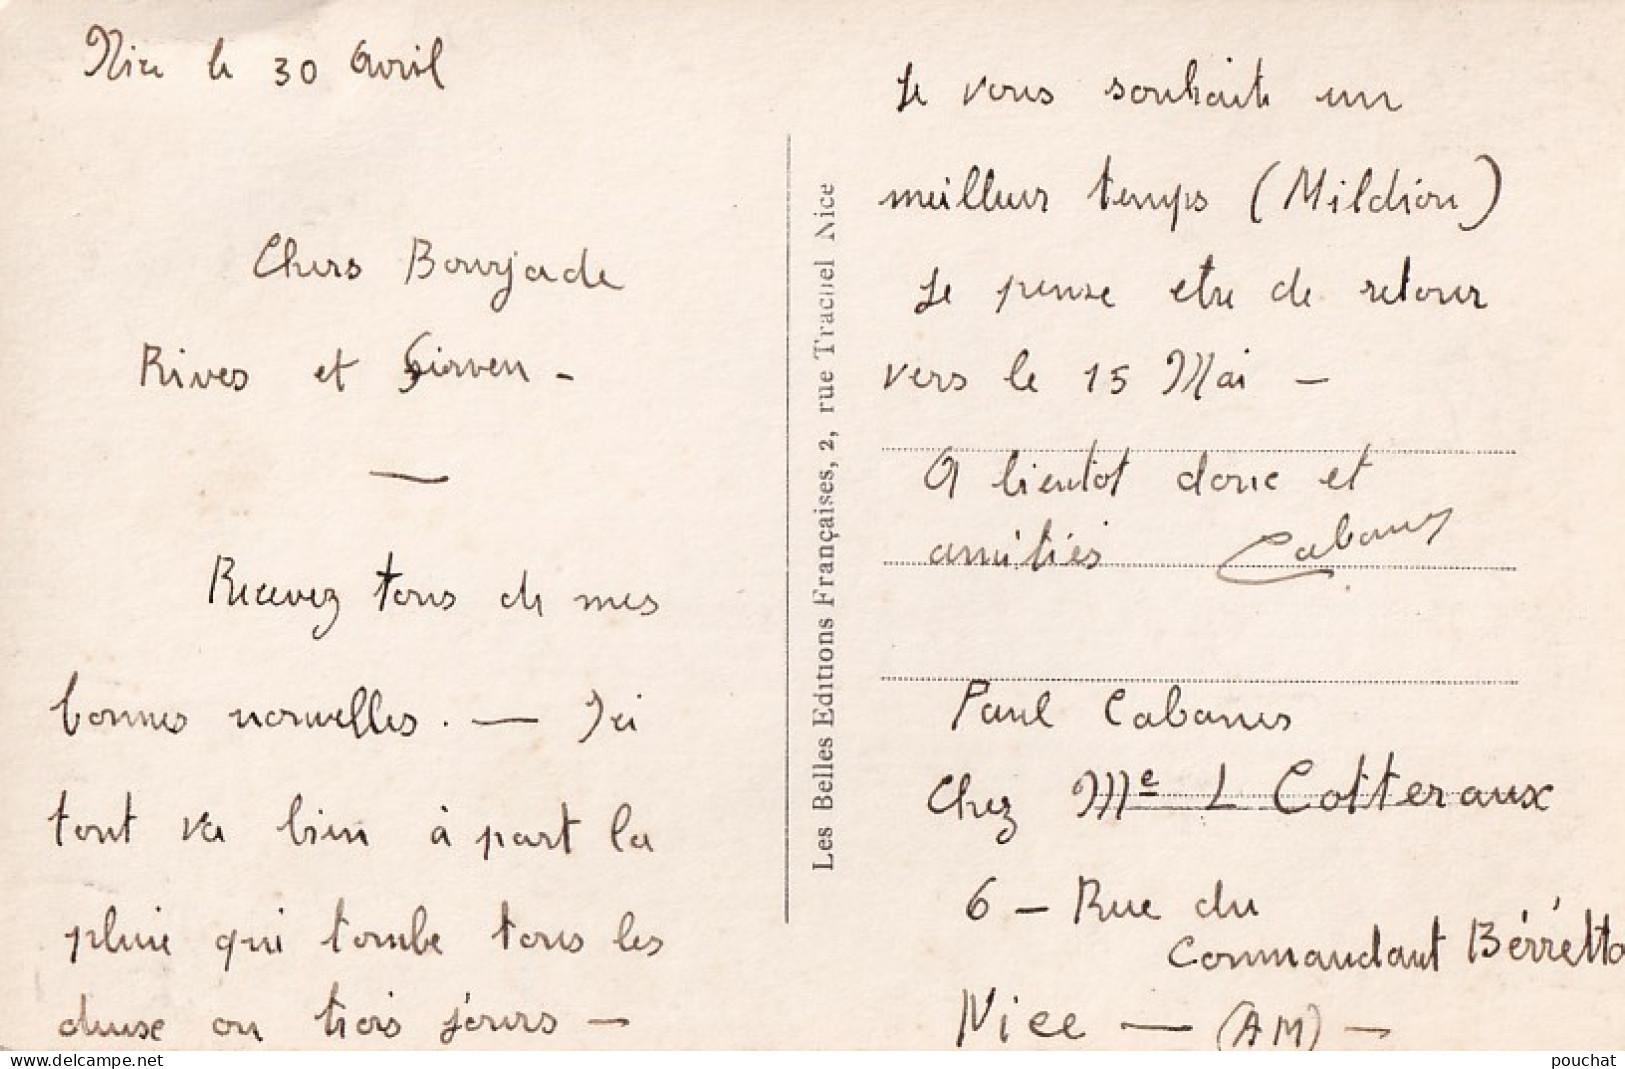 Nice le 30 Avril
Chers Bourjade
Rives et Sirven -
—
Recevez tous de mes
bonnes nouvelles. — Ici
tout va bien à part la
pluie qui tombe tous les
deuse ou trois jours —
Les Belles Editions Françaises, 2, rue Trachel Nice
Je vous souhaite un
meilleur temps (Mildiou)
Je pense etre de retour
vers le 15 Mai —
A bientot donc et
amitiés Cabanes
Paul Cabanes
Chez Me L Cotteraux
6 — Rue du
Commandant Bérrétta
Nice — (AM) —
www.delcampe.net
pouchat